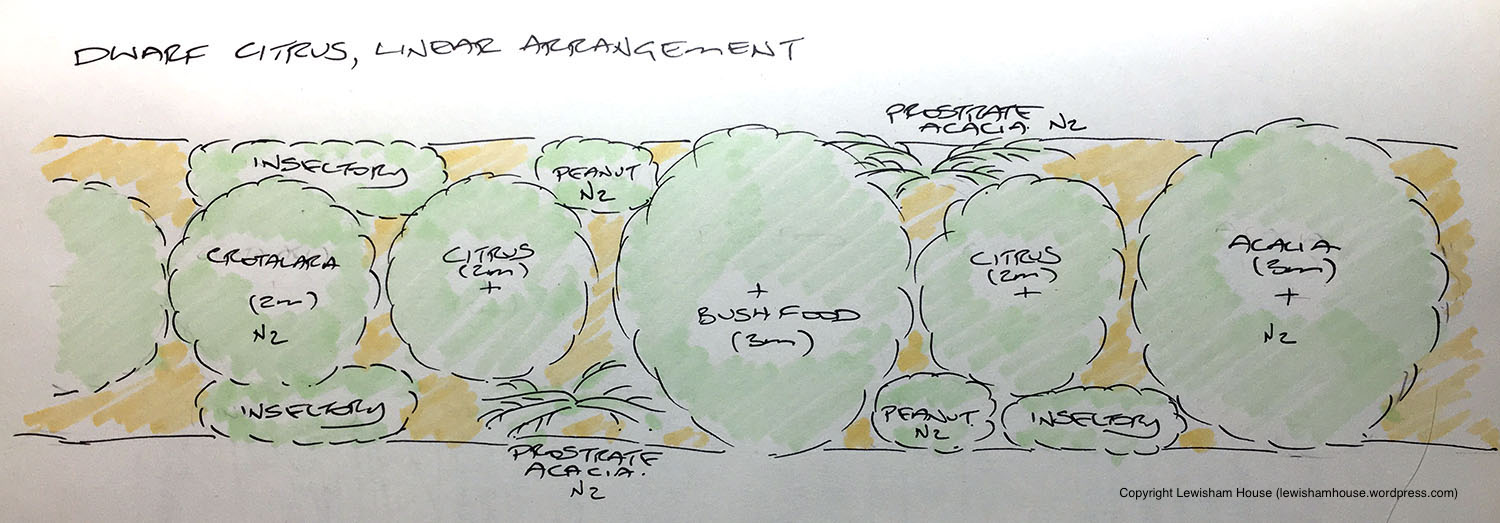 DWARF CITRUS, LINEAR ARRANGEMENT
PROSTRATE
ACACIA. N2
INSECTORY
PEANUT
N2
CROTALARA
(2m)
N2
CITRUS
(2m)
+
+
BUSH FOOD
(3m)
CITRUS
(2m)
+
ACACIA
(3m)
+
N2
INSECTORY
PROSTRATE
ACACIA.
N2
PEANUT
N2
INSECTORY
Copyright Lewisham House (lewishamhouse.wordpress.com)